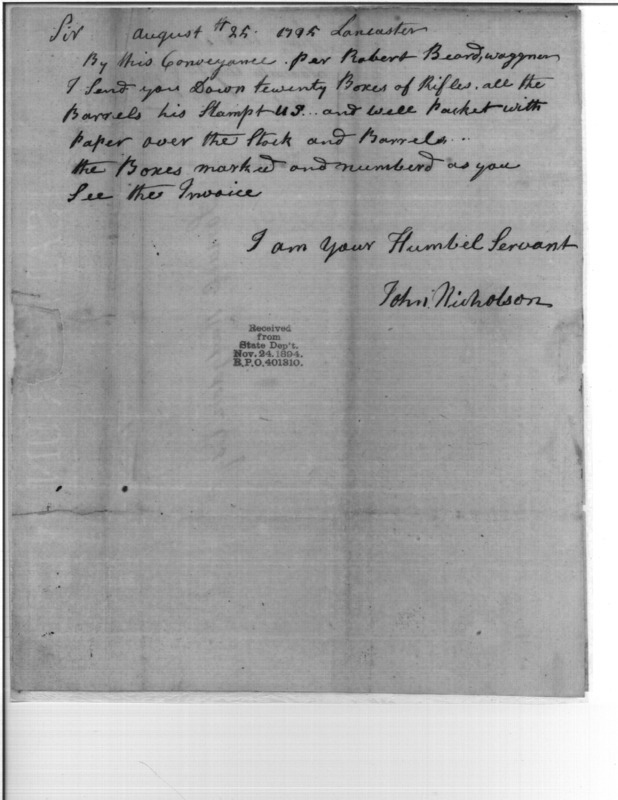 Sir August th 25. 1795 Lancaster
By this Conveyance. per Robert Beard, waggner
I Send you Down twenty Boxes of Rifles. all the
Barrels his Stampt US... and well Packet with
Paper over the Stock and Barrels...
the Boxes marked and numberd as you
See the Invoice
I am your Humbel Servant
John Nicholson
Received
from
State Dep't.
Nov. 24. 1894.
R.P.O. 401310.